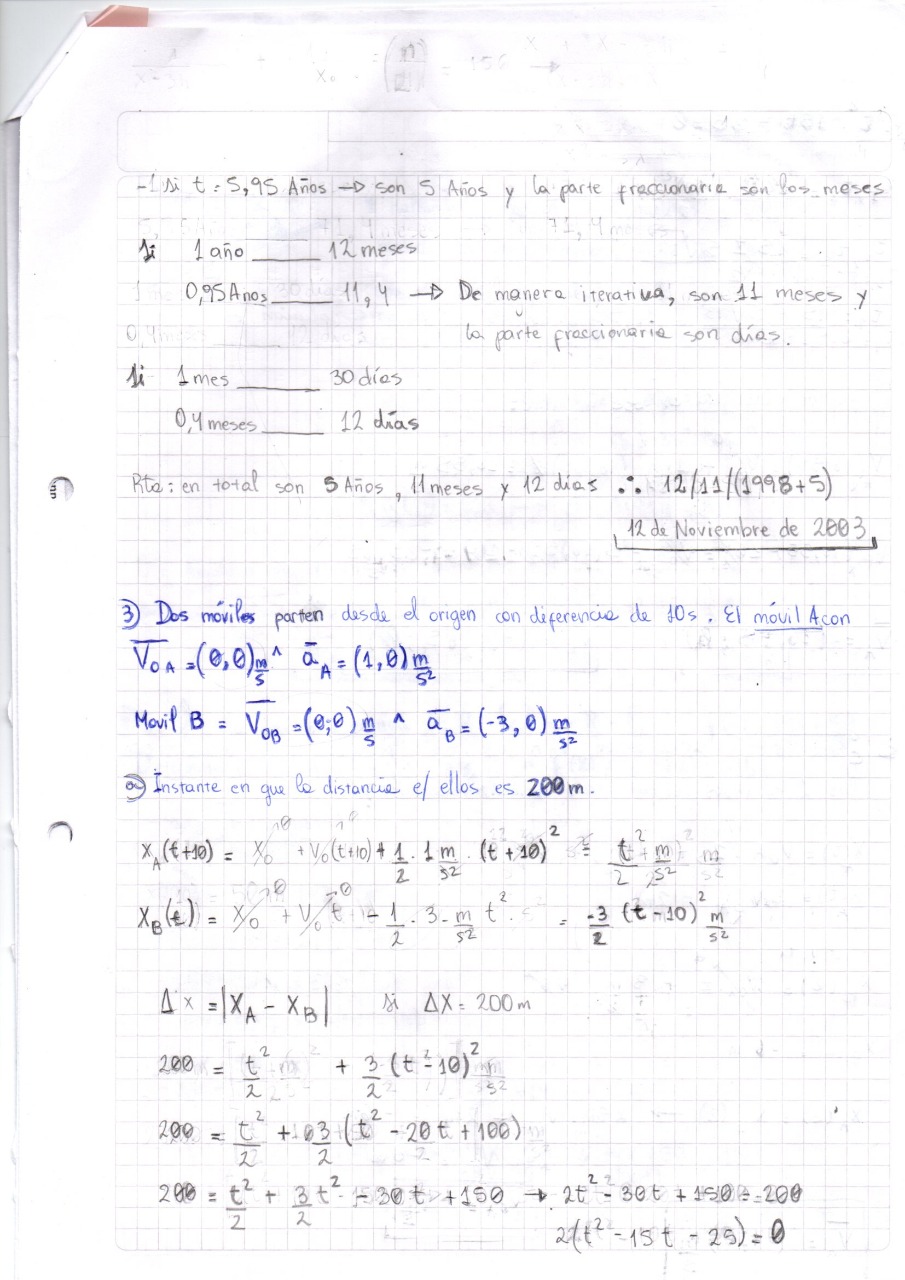 -1 si t = 5,95 Años → son 5 Años y la parte fraccionaria son los meses
Si 1 año ____ 12 meses
0,95 Anos ____ 11,4 → De manera iterativa, son 11 meses y
la parte fraccionaria son días.
Si 1 mes ____ 30 días
0,4 meses ____ 12 días
Rta: en total son 5 Años, 11 meses y 12 dias ∴ 12/11/(1998+5)
12 de Noviembre de 2003
3) Dos móviles parten desde el origen con diferencia de 10s. El móvil A con
V̅₀A = (0,0) m/s ^ a̅A = (1,0) m/s²
Movil B = V̅₀B = (0,0) m/s ^ a̅B = (-3,0) m/s²
a) Instante en que la distancia e/ ellos es 200m.
xA(t+10) = x₀ + V₀(t+10) + 1/2 · 1 m/s² · (t+10)² = t²/2 m/s²
xB(t) = x₀ + V₀ t - 1/2 · 3 m/s² t² = -3/2 (t-10)² m/s²
Δx = |xA - xB| si ΔX = 200m
200 = t²/2 + 3/2 (t-10)²
200 = t²/2 + 3/2 (t² - 20t + 100)
200 = t²/2 + 3/2 t² - 30t + 150 → 2t² - 30t + 150 = 200
2(t² - 15t - 25) = 0